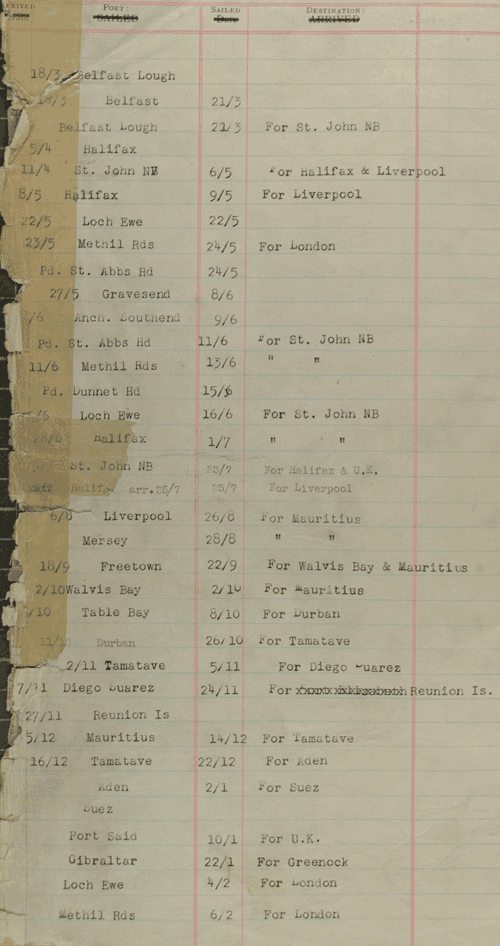 ARRIVED PORT: SAILED DESTINATION:
SAILED Date ARRIVED
18/3 Belfast Lough
Belfast 21/3
Belfast Lough 21/3 For St. John NB
5/4 Halifax
11/4 St. John NB 6/5 For Halifax & Liverpool
8/5 Halifax 9/5 For Liverpool
22/5 Loch Ewe 22/5
23/5 Methil Rds 24/5 For London
Pd. St. Abbs Hd 24/5
27/5 Gravesend 8/6
/6 Anch. Southend 9/6
Pd. St. Abbs Hd 11/6 For St. John NB
11/6 Methil Rds 13/6 " "
Pd. Dunnet Hd 15/6
/6 Loch Ewe 16/6 For St. John NB
28/6 Halifax 1/7 " "
St. John NB 23/7 For Halifax & U.K.
Halifax arr.25/7 25/7 For Liverpool
6/8 Liverpool 26/8 For Mauritius
Mersey 28/8 " "
18/9 Freetown 22/9 For Walvis Bay & Mauritius
2/10 Walvis Bay 2/10 For Mauritius
/10 Table Bay 8/10 For Durban
11/10 Durban 26/10 For Tamatave
2/11 Tamatave 5/11 For Diego Suarez
7/11 Diego Suarez 24/11 For Reunion Is.
27/11 Reunion Is
5/12 Mauritius 14/12 For Tamatave
16/12 Tamatave 22/12 For Aden
Aden 2/1 For Suez
Suez
Port Said 10/1 For U.K.
Gibraltar 22/1 For Greenock
Loch Ewe 4/2 For London
Methil Rds 6/2 For London